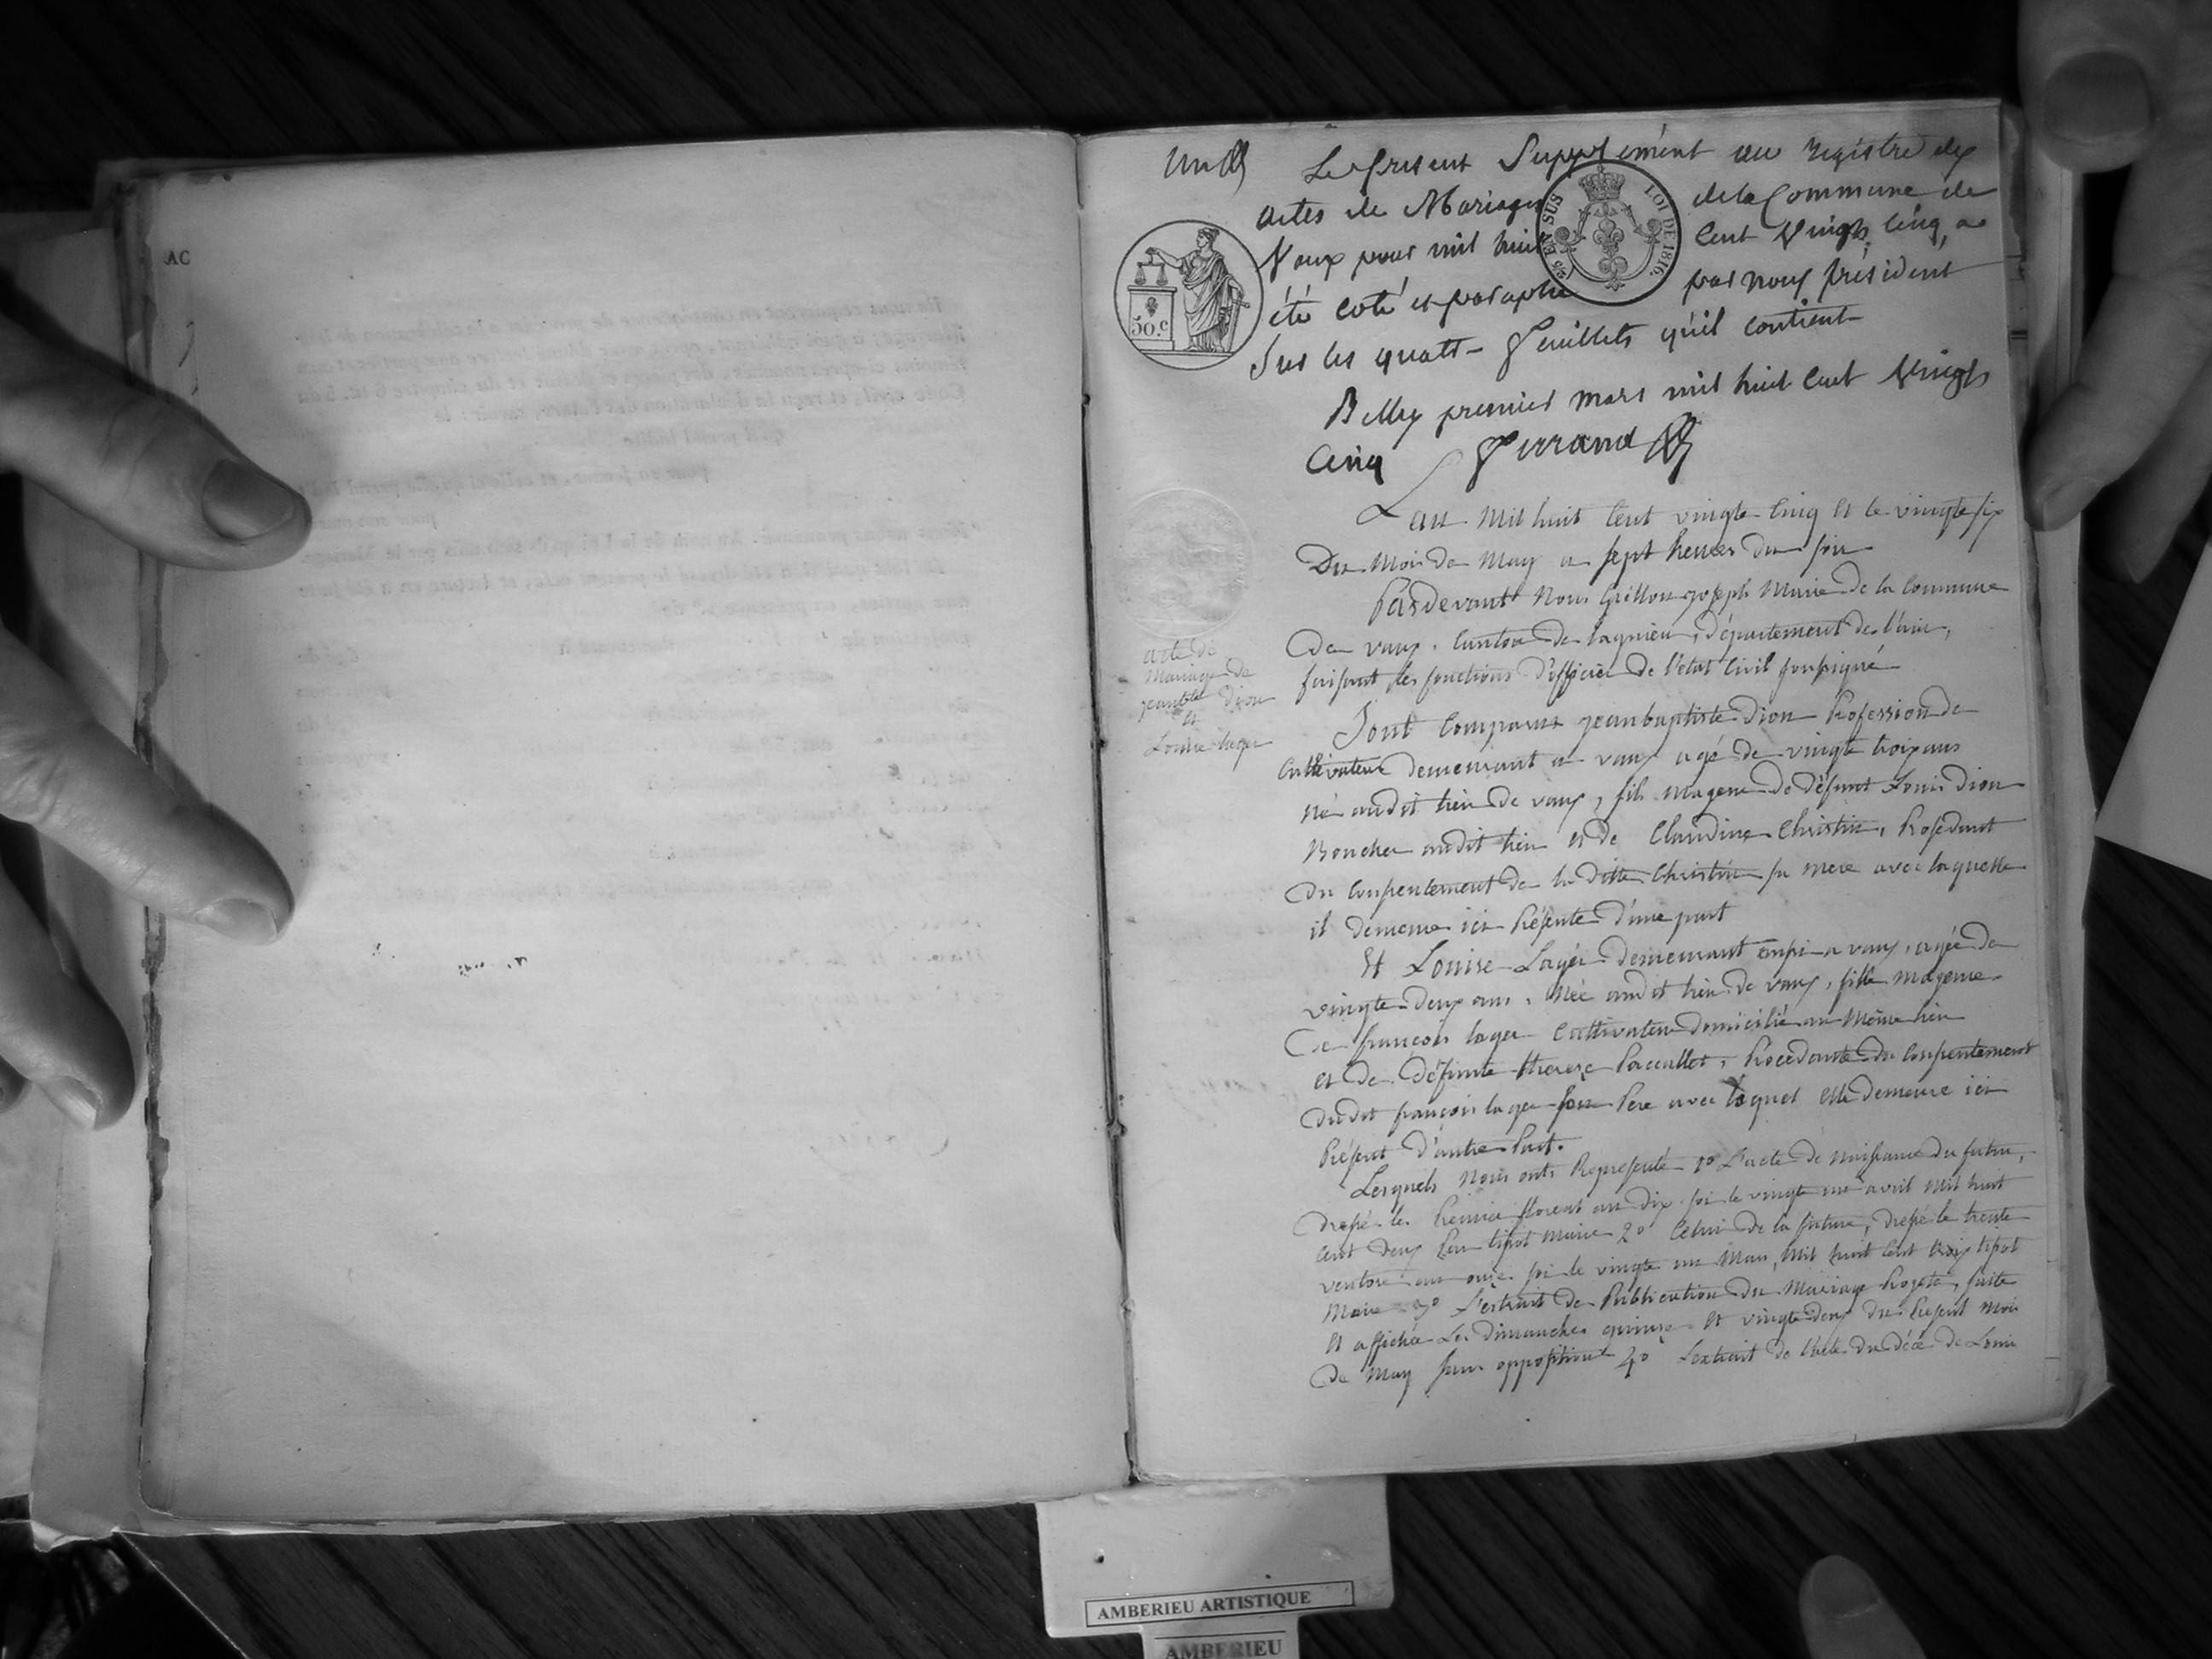 AC
un
Le présent Supplément au registre des
actes de Mariages de la Commune de
Vaux pour mil huit cent vingt cinq, a
été coté et paraphé par nous président
sur les quatre feuillets qu'il contient
Belley premier mars mil huit cent vingt
cinq Ferrand
50.c
EN SUS
LOI DE 1816.
L'an Mil huit cent vingte cinq et le vingte six
Du Mois de May a sept heures du soir
Pardevant Nous Grillon joseph Maire de la Commune
De vaux, Canton de lagnieu, département de l'ain,
faisant les fonctions d'officier de l'état Civil soussigné
acte de
Mariage de
jean bte dion
et
Louise lager
Sont Comparus jean baptiste Dion Profession de
Cultivateur demeurant a vaux agé de vingte trois ans
né audit lieu de vaux, fils mageur de défunt Louis dion
Boucher audit lieu et de Claudine Christin, Prosédant
du Consentement de la ditte Christin sa mere avec laquelle
il demeure ici Présente d'une part
Et Louise Lager demeurant aussi a vaux, agée de
vingte deux ans, Née audit lieu de vaux, fille mageure
De françois lager Cultivateur domicilié au Même lieu
et de défunte therese Paccallet, Procédante du Consentement
dudit françois lager son Pere avec lequel elle demeure ici
Présent d'autre Part.
Lesquels Nous onts Représenté 1º L'acte de Naissance du futur,
drésé le Premier floreal an dix soi le vingte un avril Mil huit
Cent deux Par tipot Maire 2º Celui de la future, drésé le trente
ventose an onze soi le vingte un Mars Mil huit Cent trois tipot
Maire 3º L'extrait de Publication du Mariage Projeté, faite
Et affichée Les dimanches quinze Et vingte deux du Présent Mois
De May sans opposition 4º L'extrait de l'acte du décé de Louis
AMBERIEU ARTISTIQUE
AMBERIEU